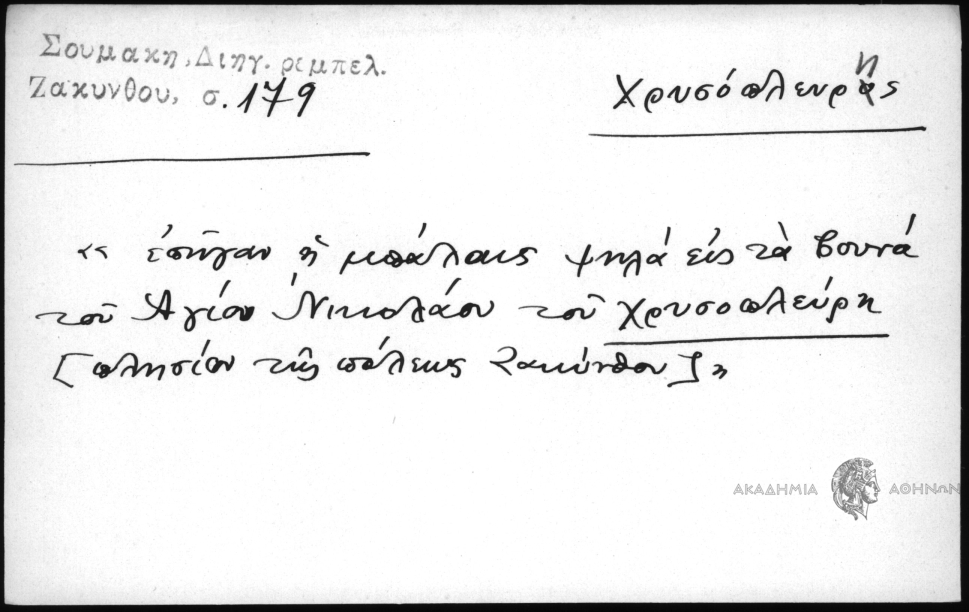 Σουμακη, Διηγ. ρεμπελ.
Ζακυνθου, σ. 179
Χρυσόπλευρης
« ἐπῆγαν ἡ μπάλαις ψηλά εἰς τὰ βουνά
τοῦ Ἁγίου Νικολάου τοῦ Χρυσοπλεύρη
[πλησίον τῆς πόλεως Ζακύνθου]»
ΑΚΑΔΗΜΙΑ ΑΘΗΝΩΝ